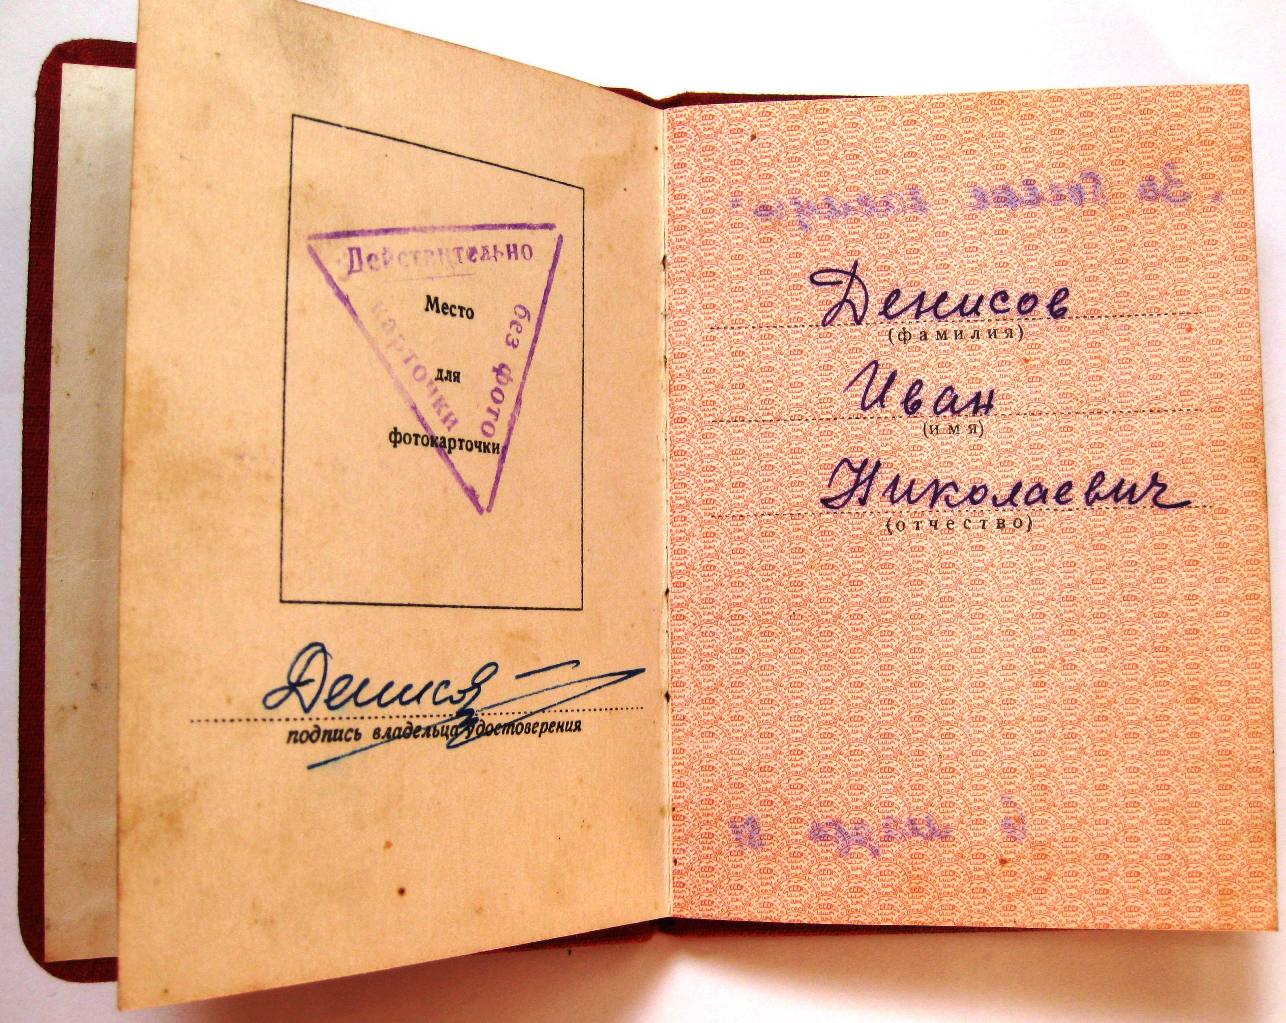 Действительно
без фото
карточки
Место
для
фотокарточки
Денисов
подпись владельца удостоверения
Денисов
(фамилия)
Иван
(имя)
Николаевич
(отчество)